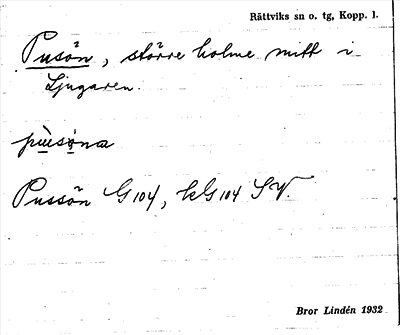 Rättviks sn o. tg, Kopp. l.
Pusön, större holme mitt i
Ljugaren.
pùsòna
Pussön G 104, kG 104 SV.
Bror Lindén 1932